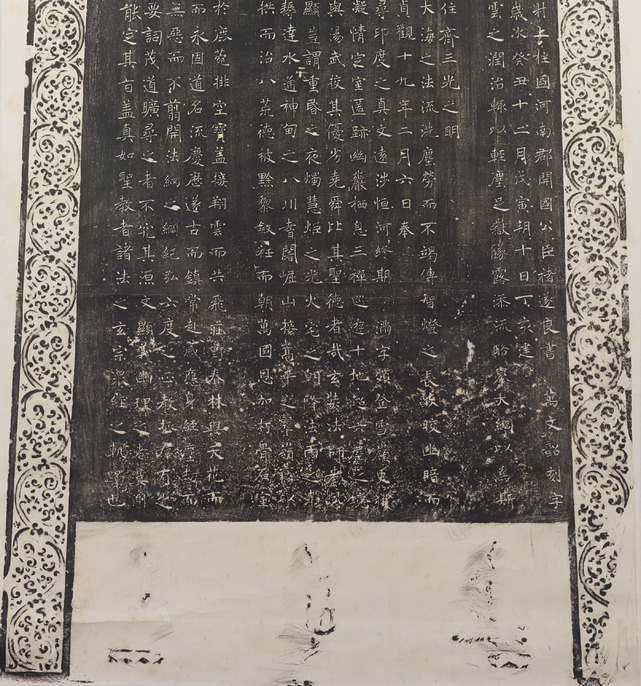 能定其旨蓋真如聖教者諸法之玄宗眾經之軌躅也
要詞茂道曠尋之者不究其源文顯義幽履之者莫測其
無惡而不翦開法網之綱紀弘六度之正教拯群有之
而永固道名流慶歷遂古而鎮常赴感應身經塵劫而
於鹿菀排空寶蓋接翔雲而共飛莊野春林與天花而
拱而治八荒德被黔黎斂衽而朝萬國恩加朽骨石室
耨達水通神甸之八川耆闍崛山接嵩華之翠嶺竊以
顯豈謂重昏之夜燭慧炬之光火宅之朝降法雨之澤
與湯武校其優劣堯舜比其聖德者哉玄奘法師者夙
凝情定室匿跡幽巖栖息三禪巡遊十地超六塵之境
尋印度之真文遠涉恒河終期滿字頻登雪嶺更獲半
貞觀十九年二月六日奉
大海之法流洗塵勞而不竭傳智燈之長焰皎幽暗而
住齊三光之明
雲之潤治輒以輕塵足岳墜露添流略舉大綱以為斯
歲次癸丑十二月戊寅朔十日丁亥建
尉上柱國河南郡開國公臣褚遂良書 萬文韶刻字